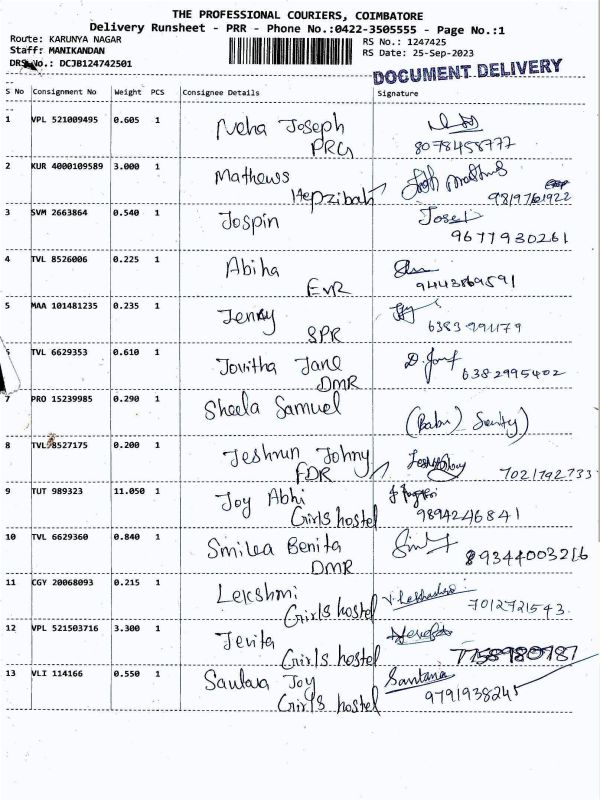 THE PROFESSIONAL COURIERS, COIMBATORE
Delivery Runsheet - PRR - Phone No.:0422-3505555 - Page No.:1
Route: KARUNYA NAGAR
RS No.: 1247425
Staff: MANIKANDAN
RS Date: 25-Sep-2023
DRS No.: DCJB124742501
DOCUMENT DELIVERY
S No Consignment No Weight PCS Consignee Details Signature
1 VPL 521009495 0.605 1 Neha Joseph
PRG 8078458777
2 KUR 4000109589 3.000 1 Mathews
Hepzibah 9819761922
3 SVM 2663864 0.540 1 Jospin
9677930261
4 TVL 8526006 0.225 1 Abiha
EVR 9443869591
5 MAA 101481235 0.235 1 Jenny
SPR
6 TVL 6629353 0.610 1 Jovitha Jane
DMR 6382995402
7 PRO 15239985 0.290 1 Sheela Samuel
(Babu)
8 TVL 8527175 0.200 1 Jeshrun Johny
FDR 7021792733
9 TUT 989323 11.050 1 Joy Abhi
Girls hostel 9894246841
10 TVL 6629360 0.840 1 Benita
DMR 89344003216
11 CGY 20068093 0.215 1 Lekshmi
Girls hostel 7012721543
12 VPL 521503716 3.300 1 Jenita
Girls hostel
13 VLI 114166 0.550 1 Joy Santana
Girls hostel